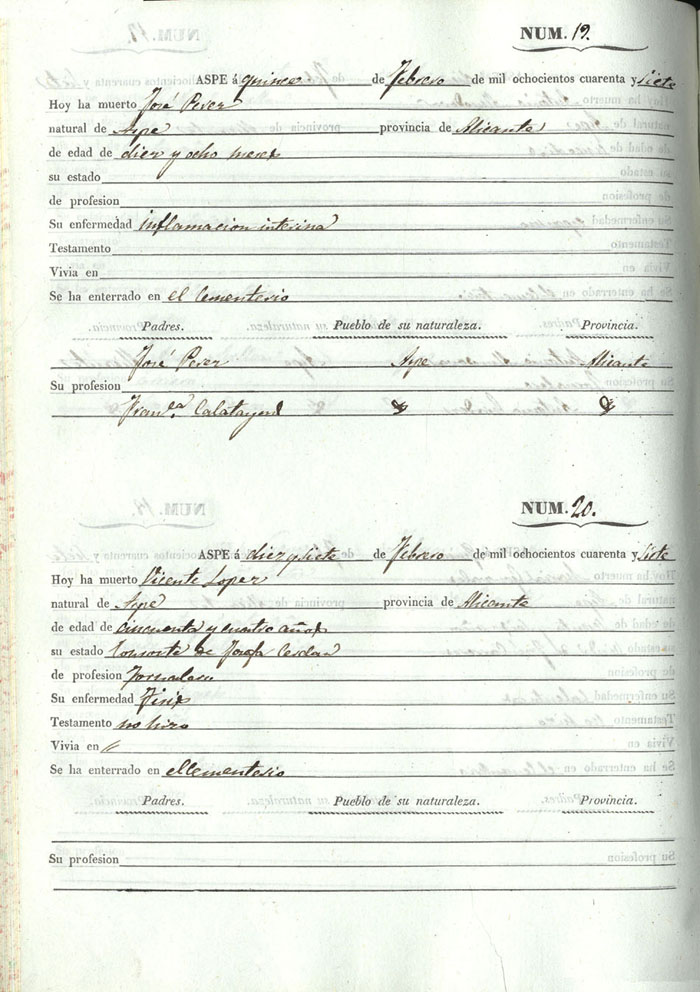 NUM. 19.
ASPE á quince de Febrero de mil ochocientos cuarenta y siete
Hoy ha muerto José Perez
natural de Aspe provincia de Alicante
de edad de diez y ocho meses
su estado
de profesion
Su enfermedad inflamacion interina
Testamento
Vivia en
Se ha enterrado en el Cementerio
Padres. Pueblo de su naturaleza. Provincia.
José Perez Aspe Alicante
Su profesion
Fran.ca Calatayud
NUM. 20.
ASPE á diez y siete de Febrero de mil ochocientos cuarenta y siete
Hoy ha muerto Vicente Lopez
natural de Aspe provincia de Alicante
de edad de cincuenta y cuatro años
su estado Consorte de Josefa Cerdan
de profesion Jornalero
Su enfermedad Tisis
Testamento no hizo
Vivia en "
Se ha enterrado en el Cementerio
Padres. Pueblo de su naturaleza. Provincia.
Su profesion